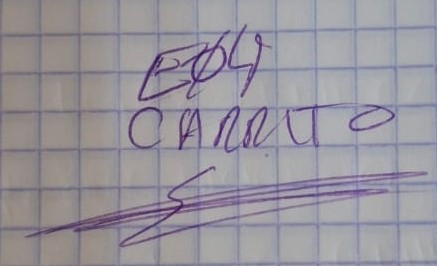 EØ4
CARRITO